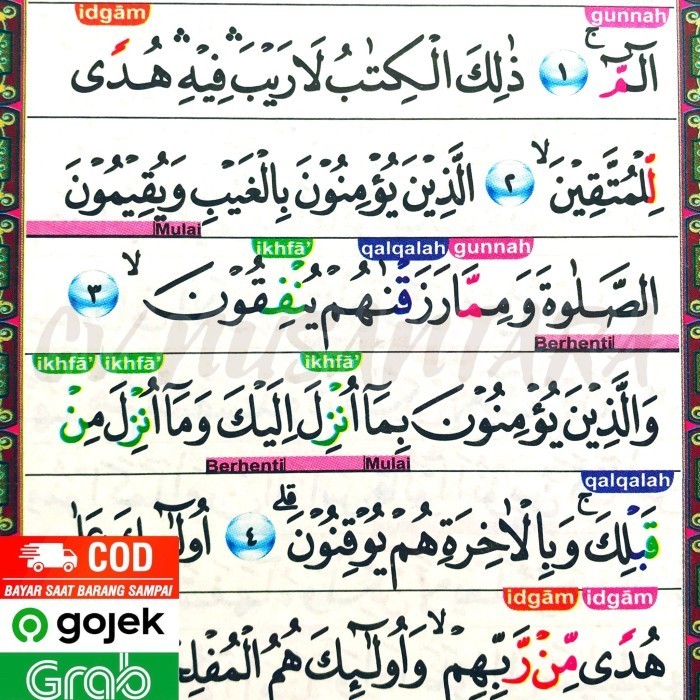 idgām gunnah
الۤمّۤ ۚ ١ ذٰلِكَ الْكِتٰبُ لَا رَيْبَ ۛ فِيْهِ ۛ هُدًى
لِّلْمُتَّقِيْنَۙ ٢ الَّذِيْنَ يُؤْمِنُوْنَ بِالْغَيْبِ وَيُقِيْمُوْنَ
Mulai
ikhfā’ qalqalah gunnah
الصَّلٰوةَ وَمِمَّا رَزَقْنٰهُمْ يُنْفِقُوْنَۙ ٣
Berhenti
CV NUSANTARA
ikhfā’ ikhfā’ ikhfā’
وَالَّذِيْنَ يُؤْمِنُوْنَ بِمَآ اُنْزِلَ اِلَيْكَ وَمَآ اُنْزِلَ مِنْ
Berhenti Mulai
qalqalah
قَبْلِكَۚ وَبِالْاٰخِرَةِ هُمْ يُوْقِنُوْنَۗ ٤ اُولٰۤىِٕكَ
idgām idgām
هُدًى مِّنْ رَّبِّهِمْۙ وَاُولٰۤىِٕكَ هُمُ
COD
BAYAR SAAT BARANG SAMPAI
gojek
Grab